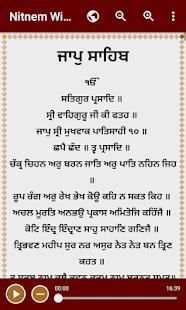 Nitnem Wi...
ਜਾਪੁ ਸਾਹਿਬ
ੴ
ਸਤਿਗੁਰ ਪ੍ਰਸਾਦਿ ॥
ਸ੍ਰੀ ਵਾਹਿਗੁਰੂ ਜੀ ਕੀ ਫਤਹ ॥
ਜਾਪੁ ਸ੍ਰੀ ਮੁਖਵਾਕ ਪਾਤਿਸਾਹੀ ੧੦ ॥
ਛਪੈ ਛੰਦ ॥ ਤ੍ਵ ਪ੍ਰਸਾਦਿ ॥
ਚੱਕ੍ਰ ਚਿਹਨ ਅਰੁ ਬਰਨ ਜਾਤਿ ਅਰੁ ਪਾਤਿ ਨਹਿਨ ਜਿਹ
॥
ਰੂਪ ਰੰਗ ਅਰੁ ਰੇਖ ਭੇਖ ਕੋਊ ਕਹਿ ਨ ਸਕਤ ਕਿਹ ॥
ਅਚਲ ਮੂਰਤਿ ਅਨਭਉ ਪ੍ਰਕਾਸ ਅਮਿਤੋਜਿ ਕਹਿੱਜੈ ॥
ਕੋਟਿ ਇੰਦ੍ਰ ਇੰਦ੍ਰਾਣ ਸਾਹੁ ਸਾਹਾਣਿ ਗਣਿਜੈ ॥
ਤ੍ਰਿਭਵਣ ਮਹੀਪ ਸੁਰ ਨਰ ਅਸੁਰ ਨੇਤ ਨੇਤ ਬਨ ਤ੍ਰਿਣ
ਕਹਤ ॥
00:00 16:39